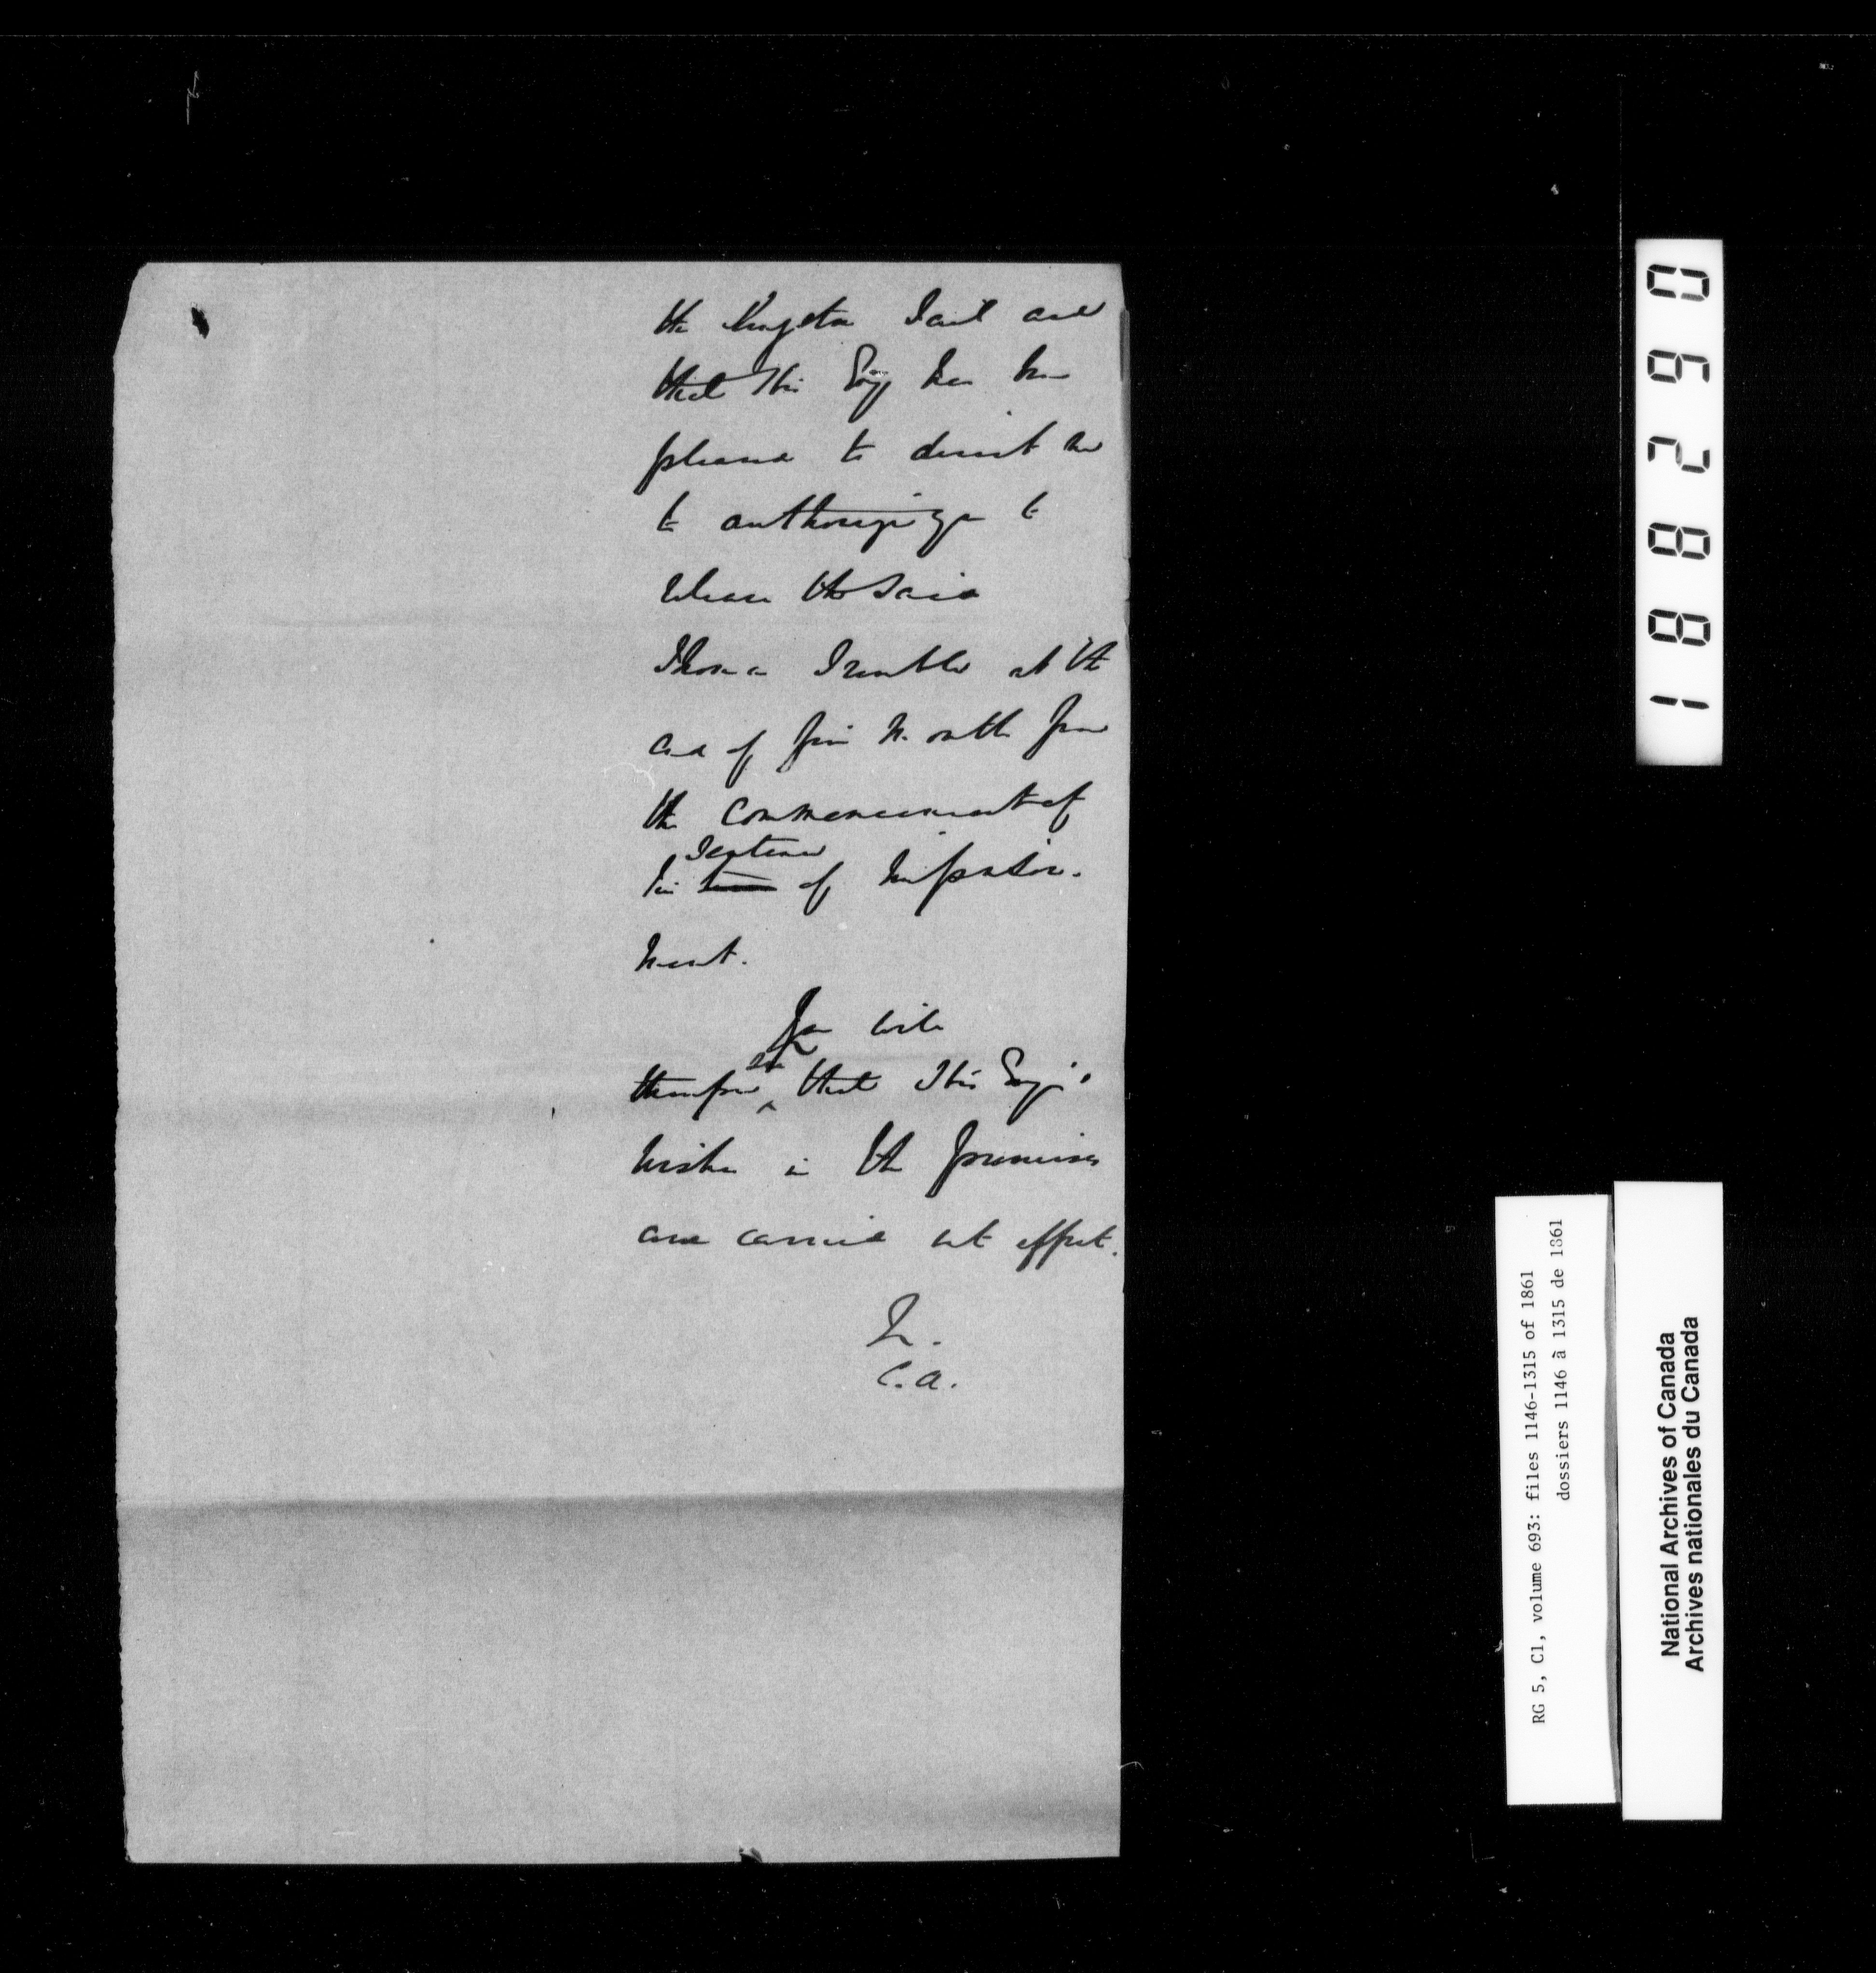 the Kingston Jail and
that His Exy has been
pleased to direct me
to authorize you to
release the said
Thomas Trumble at the
end of five Months from
the commencement of
his sentence of imprison-
ment.
You will
therefore see that His Exy's
wishes in the premises
are carried into effect.
C.A.
188290
RG 5, C1, volume 693: files 1146-1315 of 1861
dossiers 1146 à 1315 de 1861
National Archives of Canada
Archives nationales du Canada